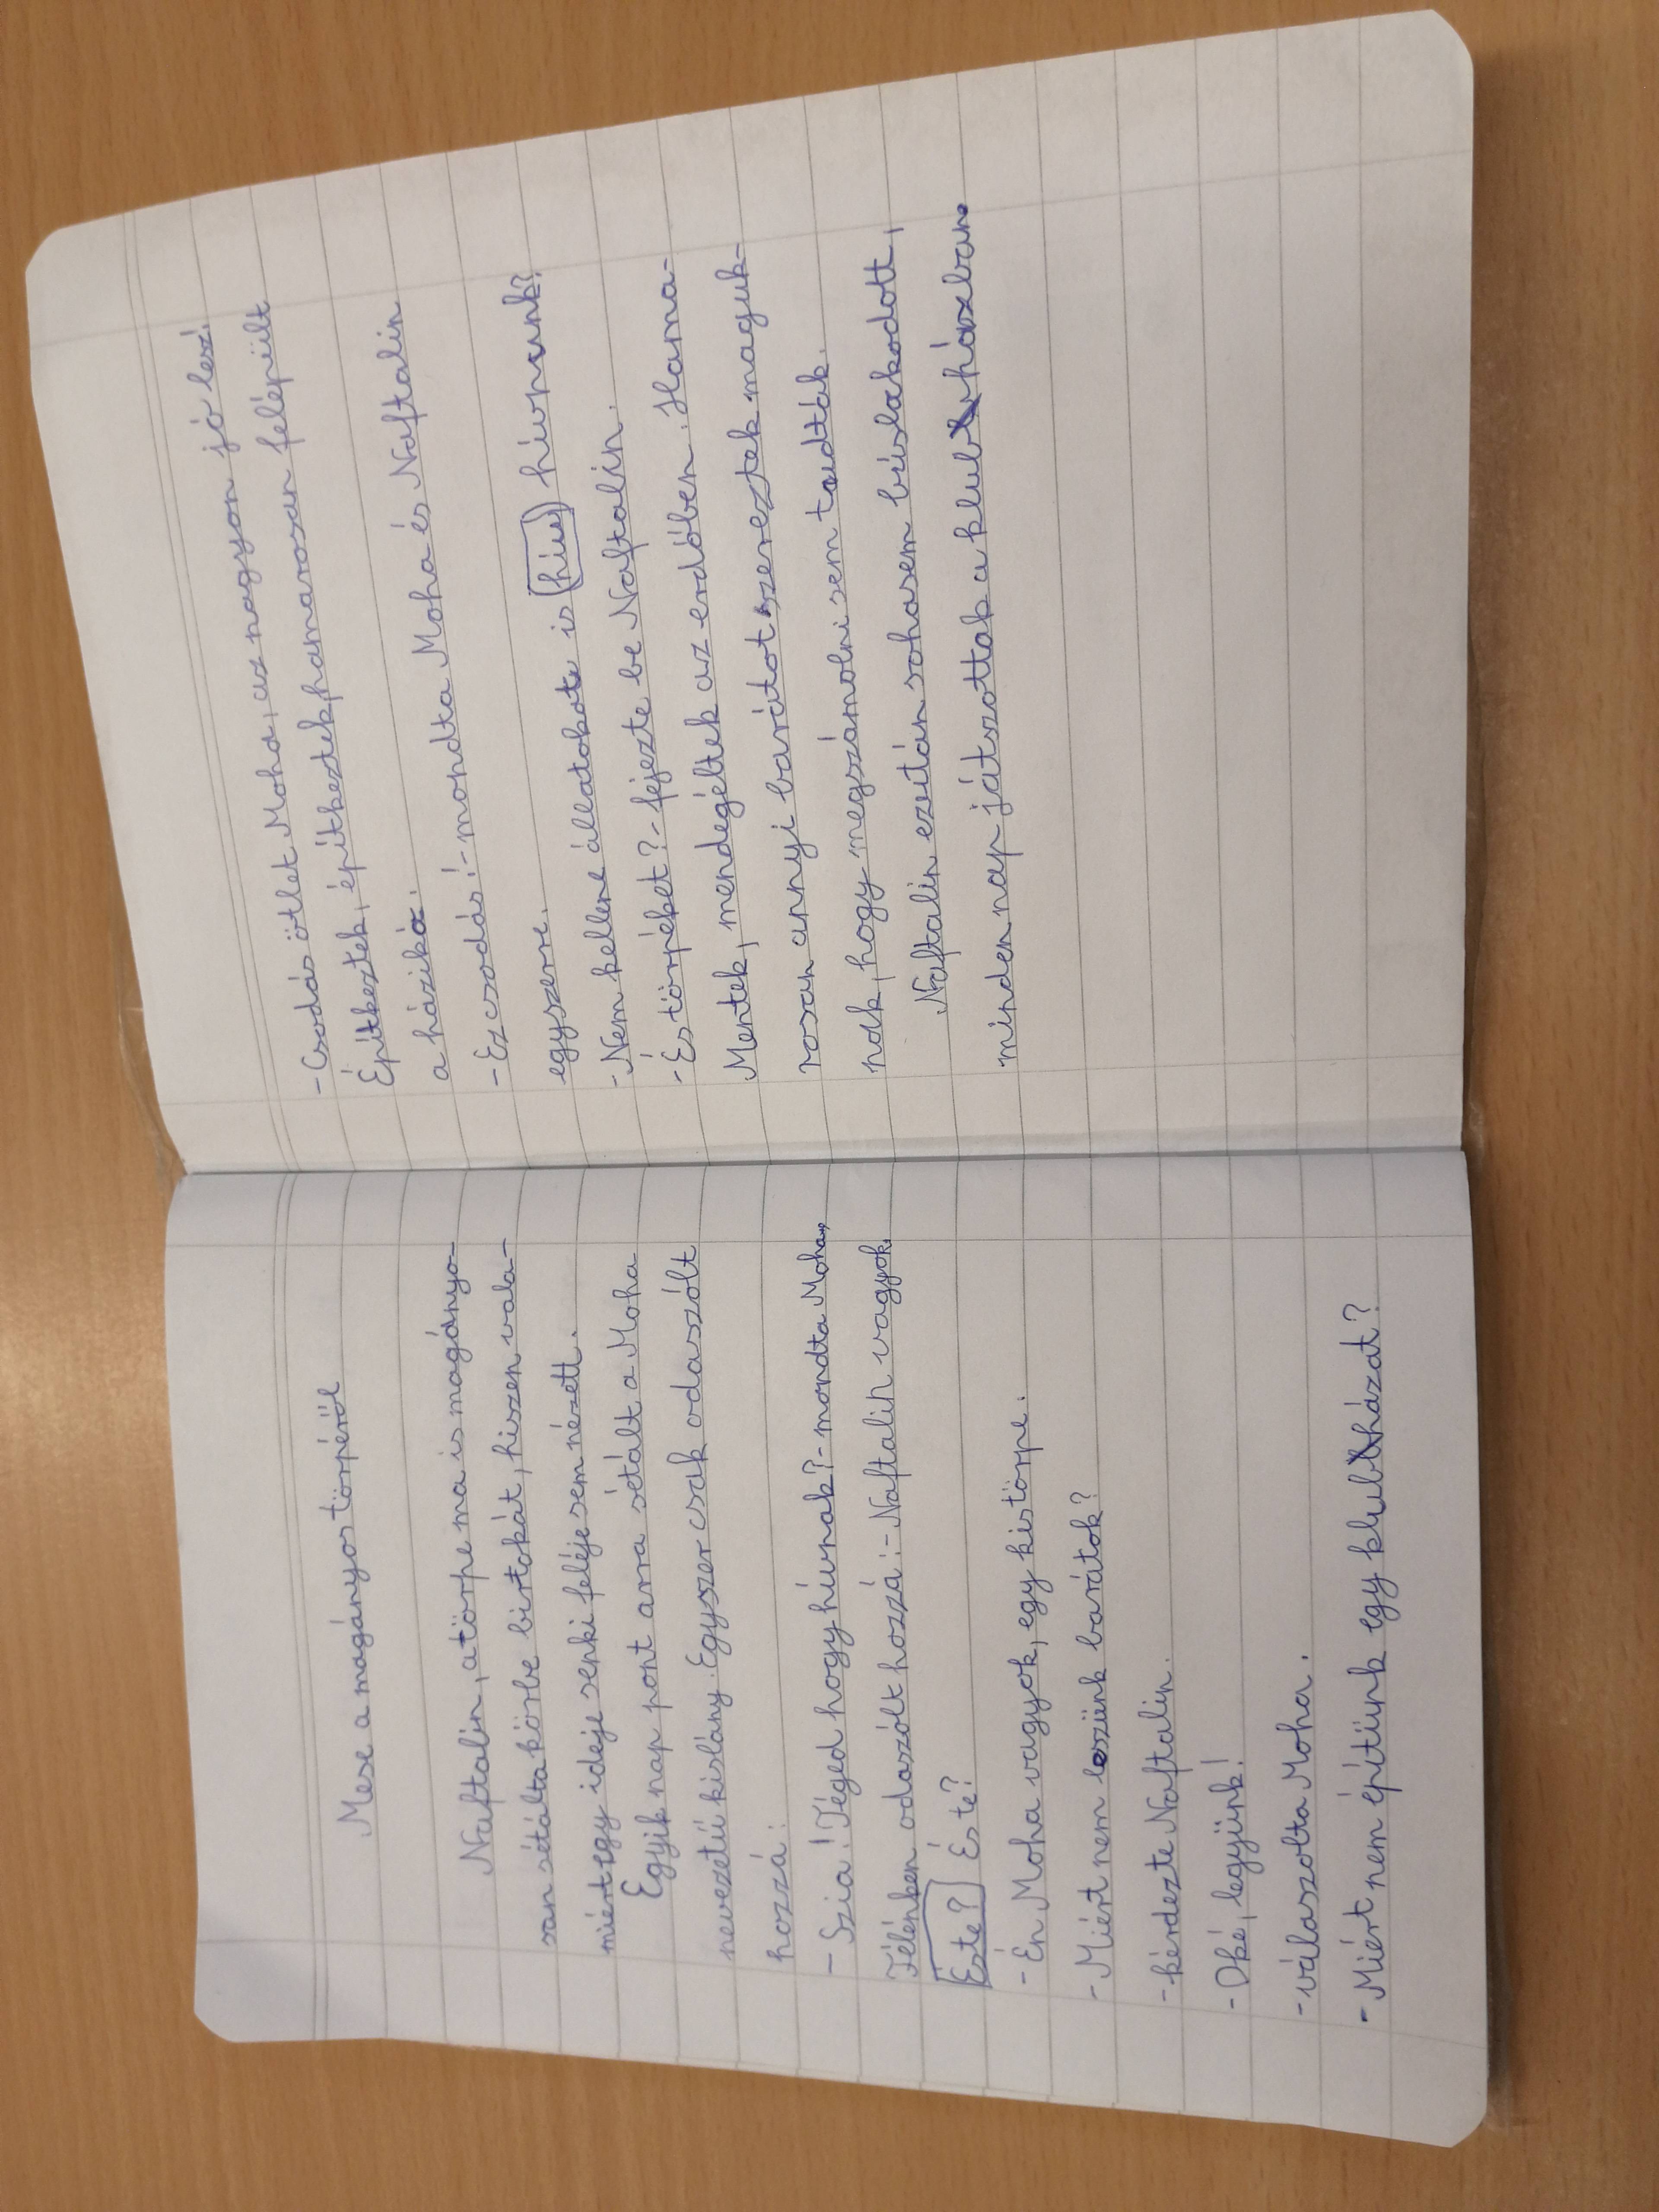 Mese a magányos törpéről
Naftalin, a törpe ma is magányo-
san sétálta körbe birtokát, hiszen vala-
miért egy ideje senki feléje sem nézett.
Egyik nap pont arra sétált a Moha
nevezetű kislány. Egyszer csak odaszólt
hozzá:
- Szia! Téged hogy hívnak? - mondta Moha.
Félénken odaszólt hozzá: - Naftalin vagyok.
Este? És te?
- Én Moha vagyok, egy kis törpe.
- Miért nem leszünk barátok?
- kérdezte Naftalin.
- Oké, legyünk!
- válaszolta Moha.
- Miért nem építünk egy klubházat?
- Csodás ötlet Moha, az nagyon jó lesz!
Építkeztek, építkeztek, hamarosan felépült
a házikó.
- Ez csodás! - mondta Moha és Naftalin
egyszerre.
- Nem kellene állatokat is (hív) hívnunk?
- És törpéket? - fejezte be Naftalin.
Mentek, mendegéltek az erdőben. Hama-
rosan annyi barátot szereztek maguk-
nak, hogy megszámolni sem tudták.
Naftalin ezután sohasem búslakodott,
minden nap játszottak a klubházban.